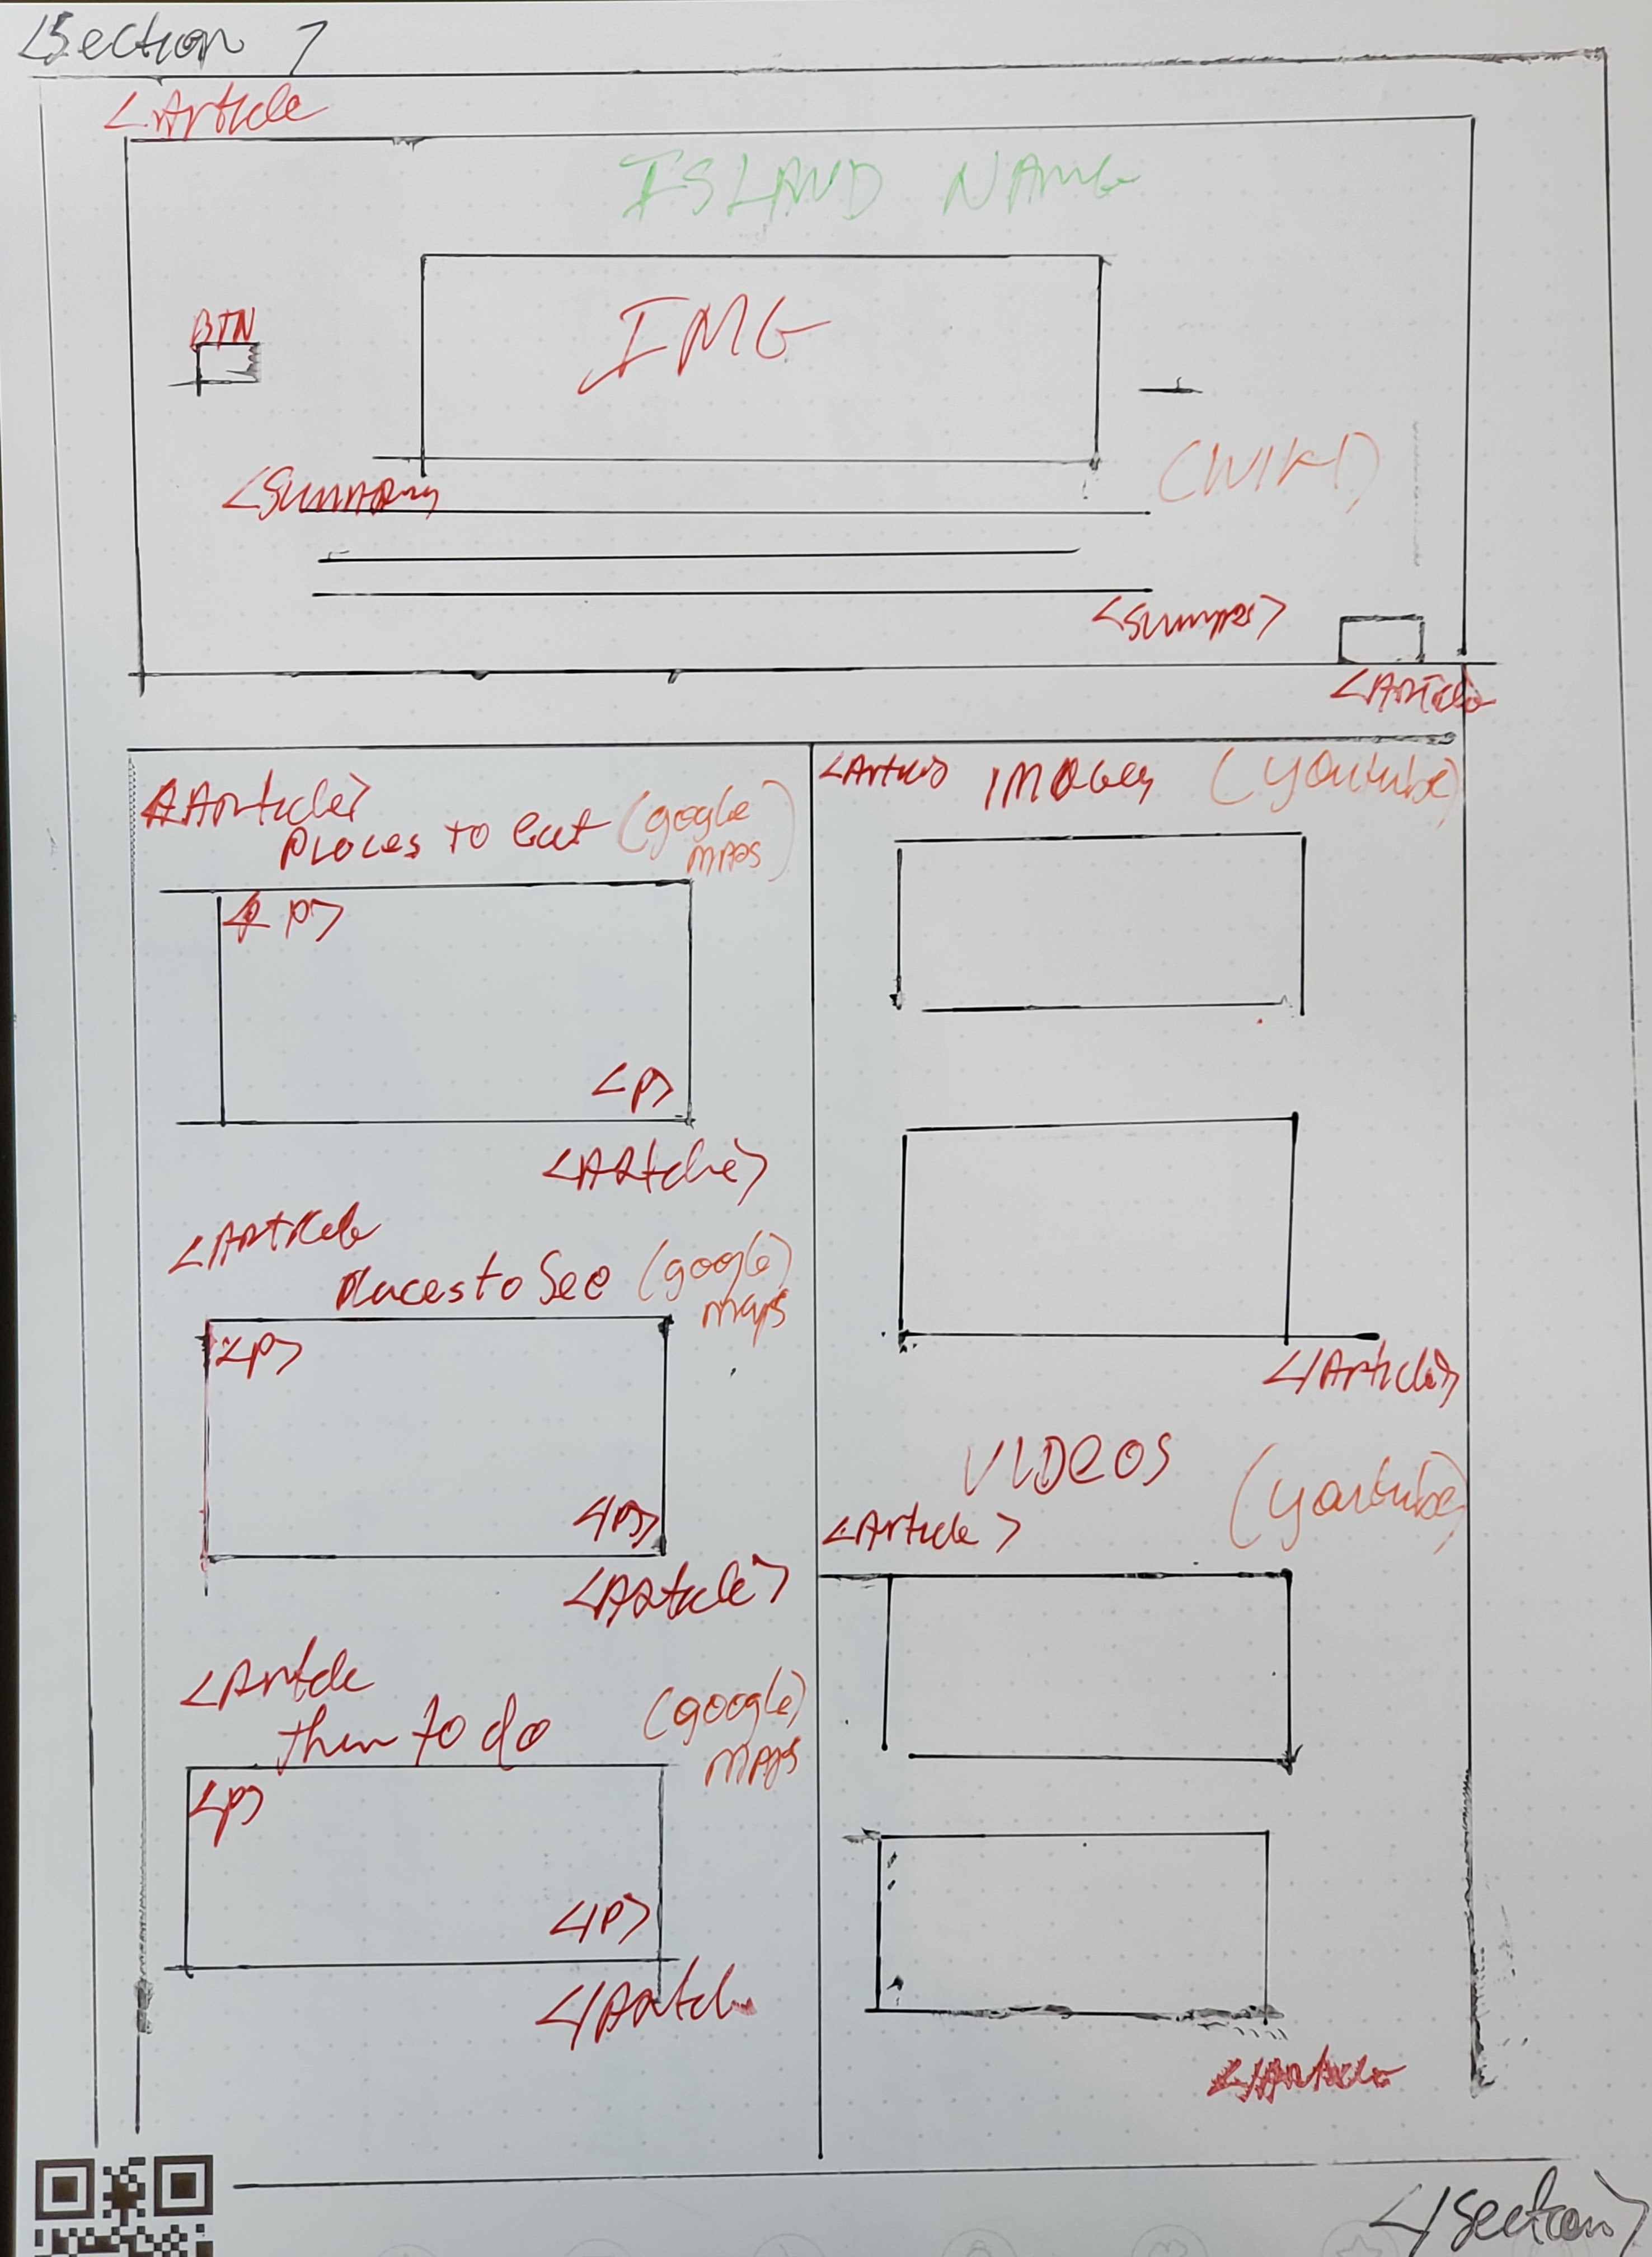 <Section >
<Article
ISLAND NAME
BTN
IMG
(WIKI)
<Summary
<Summary>
<Article
<Article>
Places to Eat (google
maps)
<p>
<p>
<Article>
<Article
Places to See (google)
maps
<p>
</p>
<Article>
<Article
to do (google)
maps
<p>
</p>
</Article
<Article> IMAGes (youtube)
</Article>
VIDEOS (youtube)
<Article>
</Article
</Section>